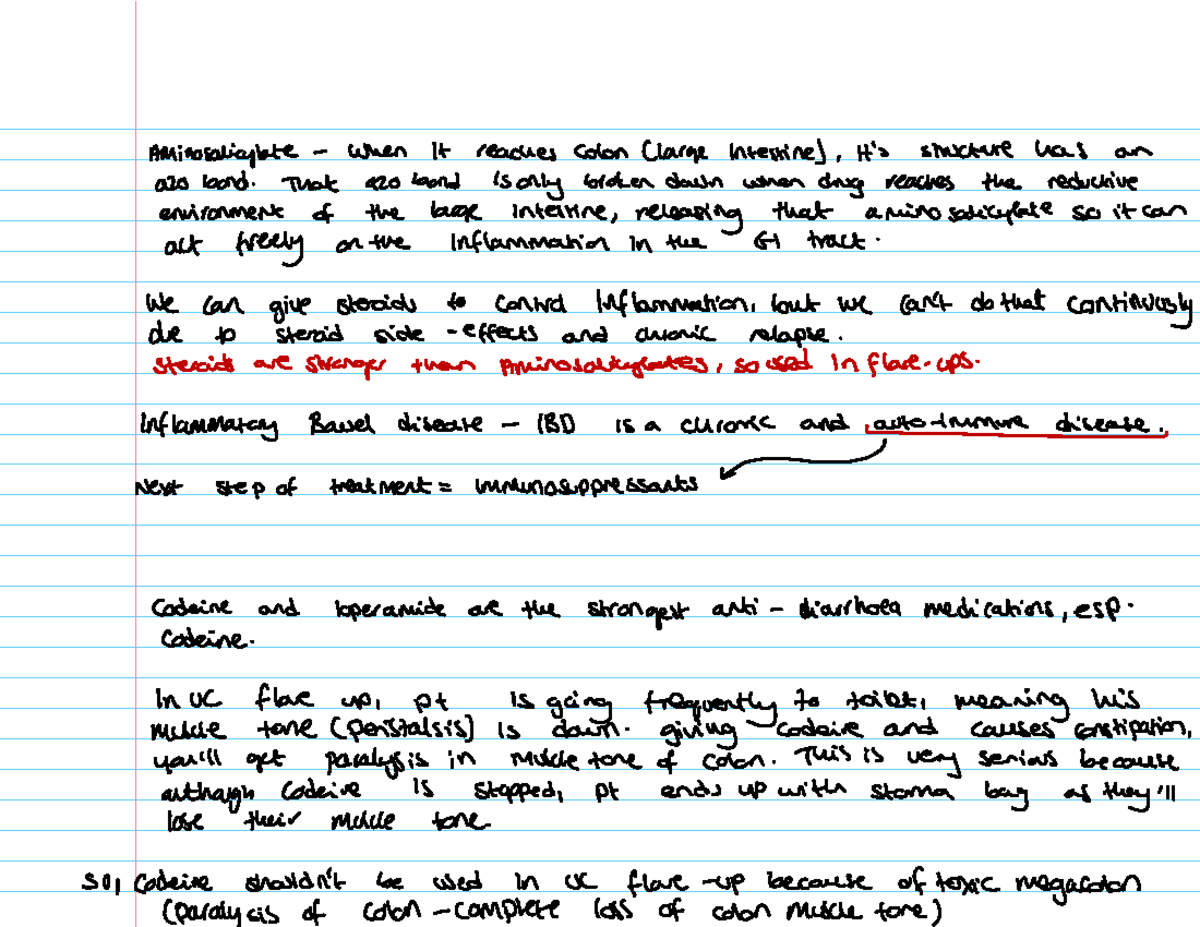 Aminosalicylate - when it reaches colon (large intestine), it's structure has an
azo bond. That azo bond is only broken down when drug reaches the reductive
environment of the large intestine, releasing that aminosalicylate so it can
act freely on the inflammation in the GI tract.
We can give steroids to control inflammation, but we can't do that continuously
due to steroid side-effects and chronic relapse.
Steroids are stronger than Aminosalicylates, so used in flare-ups.
Inflammatory Bowel disease - IBD is a chronic and auto-immune disease.
Next step of treatment = immunosuppressants
Codeine and loperamide are the strongest anti-diarrhoea medications, esp.
codeine.
In UC flare up, pt is going frequently to toilet, meaning his
muscle tone (peristalsis) is down. giving codeine and causes constipation,
you'll get paralysis in muscle tone of colon. This is very serious because
although codeine is stopped, pt ends up with stoma bag as they'll
lose their muscle tone.
So, Codeine shouldn't be used in UC flare-up because of toxic megacolon
(paralysis of colon - complete loss of colon muscle tone)